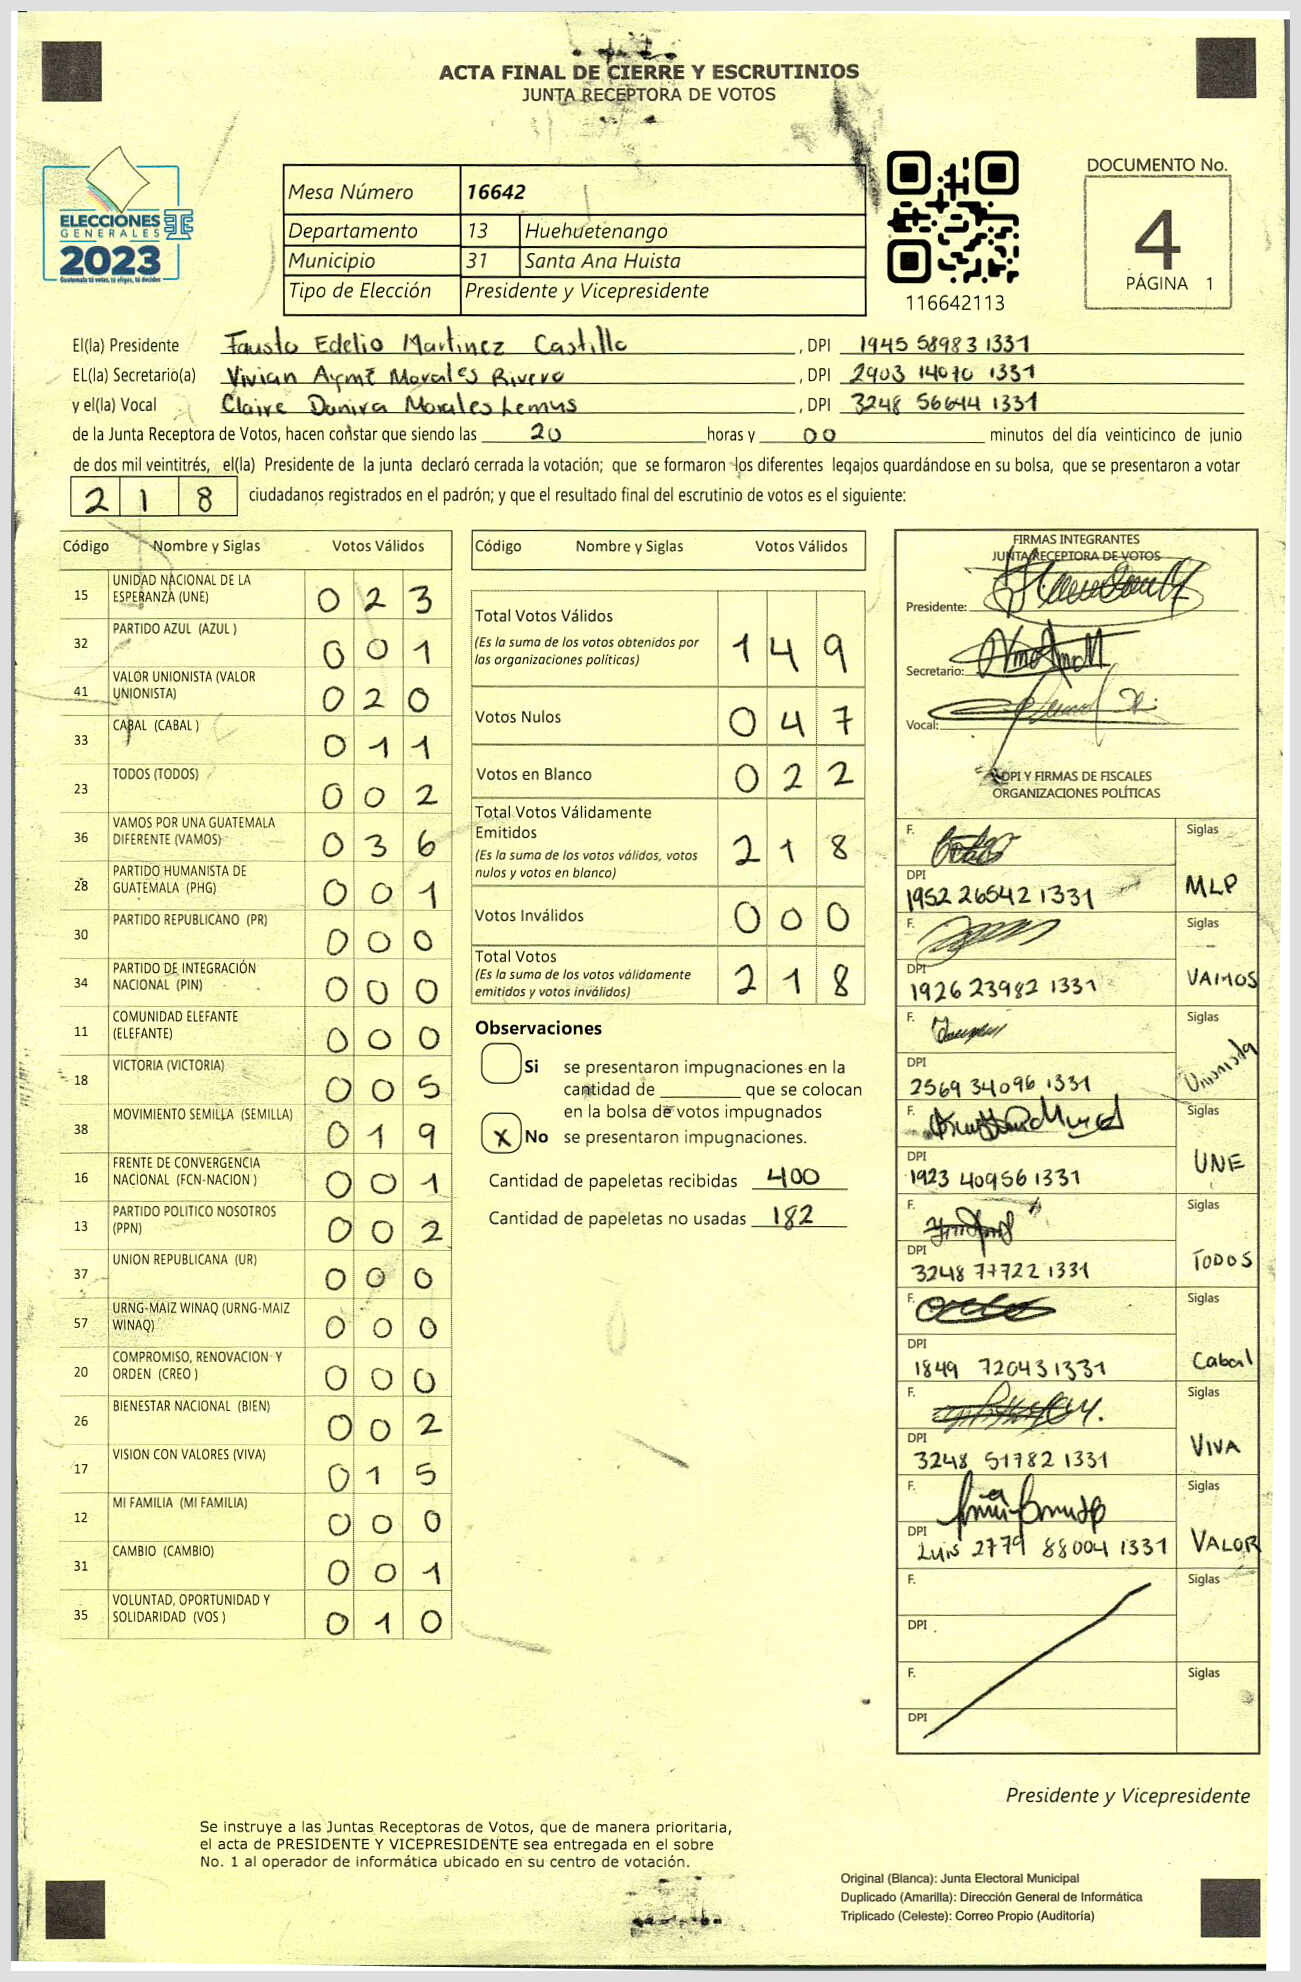 ACTA FINAL DE CIERRE Y ESCRUTINIOS
JUNTA RECEPTORA DE VOTOS
ELECCIONES
GENERALES
2023
Guatemala tú votas, tú eliges, tú decides
Mesa Número 16642
Departamento 13 Huehuetenango
Municipio 31 Santa Ana Huista
Tipo de Elección Presidente y Vicepresidente
116642113
DOCUMENTO No.
4
PÁGINA 1
El(la) Presidente Fausto Edelio Martinez Castillo , DPI 1945 58983 1331
EL(la) Secretario(a) Vivian Aymé Morales Rivera , DPI 2903 14070 1331
y el(la) Vocal Claire Danira Morales Lemus , DPI 3248 56644 1331
de la Junta Receptora de Votos, hacen constar que siendo las 20 horas y 00 minutos del día veinticinco de junio
de dos mil veintitrés, el(la) Presidente de la junta declaró cerrada la votación; que se formaron los diferentes legajos guardándose en su bolsa, que se presentaron a votar
2 1 8 ciudadanos registrados en el padrón; y que el resultado final del escrutinio de votos es el siguiente:
Código Nombre y Siglas Votos Válidos
15 UNIDAD NACIONAL DE LA
ESPERANZA (UNE) 0 2 3
32 PARTIDO AZUL (AZUL ) 0 0 1
41 VALOR UNIONISTA (VALOR
UNIONISTA) 0 2 0
33 CABAL (CABAL ) 0 1 1
23 TODOS (TODOS) 0 0 2
36 VAMOS POR UNA GUATEMALA
DIFERENTE (VAMOS) 0 3 6
28 PARTIDO HUMANISTA DE
GUATEMALA (PHG) 0 0 1
30 PARTIDO REPUBLICANO (PR) 0 0 0
34 PARTIDO DE INTEGRACIÓN
NACIONAL (PIN) 0 0 0
11 COMUNIDAD ELEFANTE
(ELEFANTE) 0 0 0
18 VICTORIA (VICTORIA) 0 0 5
38 MOVIMIENTO SEMILLA (SEMILLA) 0 1 9
16 FRENTE DE CONVERGENCIA
NACIONAL (FCN-NACION ) 0 0 1
13 PARTIDO POLITICO NOSOTROS
(PPN) 0 0 2
37 UNION REPUBLICANA (UR) 0 0 0
57 URNG-MAIZ WINAQ (URNG-MAIZ
WINAQ) 0 0 0
20 COMPROMISO, RENOVACION Y
ORDEN (CREO ) 0 0 0
26 BIENESTAR NACIONAL (BIEN) 0 0 2
17 VISION CON VALORES (VIVA) 0 1 5
12 MI FAMILIA (MI FAMILIA) 0 0 0
31 CAMBIO (CAMBIO) 0 0 1
35 VOLUNTAD, OPORTUNIDAD Y
SOLIDARIDAD (VOS ) 0 1 0
Código Nombre y Siglas Votos Válidos
Total Votos Válidos
(Es la suma de los votos obtenidos por
las organizaciones políticas) 1 4 9
Votos Nulos 0 4 7
Votos en Blanco 0 2 2
Total Votos Válidamente
Emitidos
(Es la suma de los votos válidos, votos
nulos y votos en blanco) 2 1 8
Votos Inválidos 0 0 0
Total Votos
(Es la suma de los votos válidamente
emitidos y votos inválidos) 2 1 8
Observaciones
Si se presentaron impugnaciones en la
cantidad de ________ que se colocan
en la bolsa de votos impugnados
X No se presentaron impugnaciones.
Cantidad de papeletas recibidas 400
Cantidad de papeletas no usadas 182
FIRMAS INTEGRANTES
JUNTA RECEPTORA DE VOTOS
Presidente:
Secretario:
Vocal:
DPI Y FIRMAS DE FISCALES
ORGANIZACIONES POLÍTICAS
F. Siglas
DPI
1952 26542 1331 MLP
F. Siglas
DPI
1926 23982 1331 VAMOS
F. Siglas
DPI
2569 34096 1331 Unionista
F. Siglas
DPI
1923 40956 1331 UNE
F. Siglas
DPI
3248 77722 1331 TODOS
F. Siglas
DPI
1849 72043 1331 Cabal
F. Siglas
DPI
3248 51782 1331 VIVA
F. Siglas
DPI
Luis 2779 88004 1331 VALOR
F. Siglas
DPI
F. Siglas
DPI
Presidente y Vicepresidente
Se instruye a las Juntas Receptoras de Votos, que de manera prioritaria,
el acta de PRESIDENTE Y VICEPRESIDENTE sea entregada en el sobre
No. 1 al operador de informática ubicado en su centro de votación.
Original (Blanca): Junta Electoral Municipal
Duplicado (Amarilla): Dirección General de Informática
Triplicado (Celeste): Correo Propio (Auditoría)